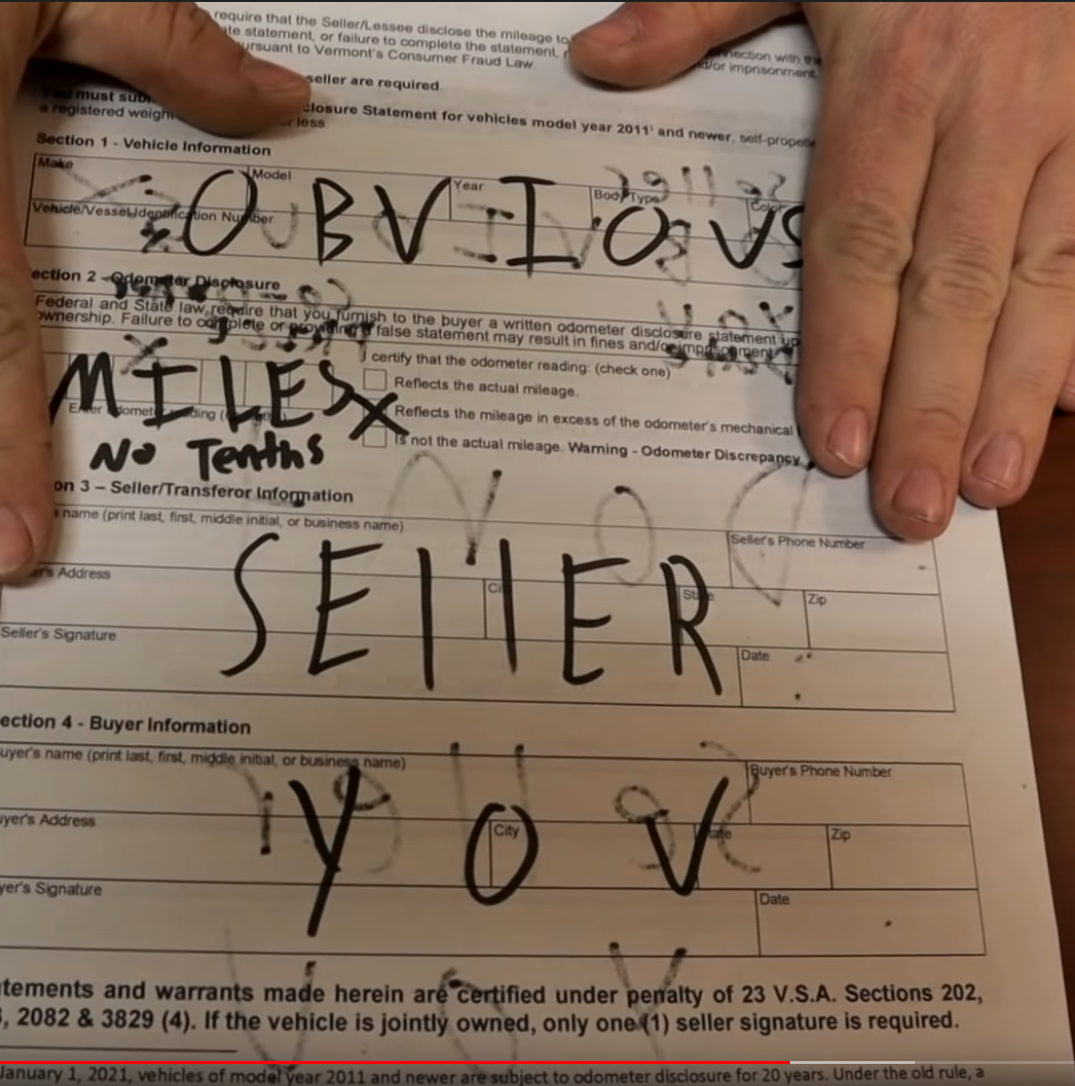 require that the Seller/Lessee disclose the mileage to
te statement, or failure to complete the statement, nnection with the
ursuant to Vermont's Consumer Fraud Law. d/or imprisonment.
seller are required.
You must sub closure Statement for vehicles model year 2011¹ and newer, self-propelle
a registered weight or less.
Section 1 - Vehicle Information
Make Model Year Body Type Color
OBVIOVS
Vehicle/Vessel Identification Number
ection 2 - Odometer Disclosure
Federal and State law require that you furnish to the buyer a written odometer disclosure statement up
ownership. Failure to complete or providing a false statement may result in fines and/or imprisonment.
I certify that the odometer reading: (check one)
MILES
Reflects the actual mileage.
X Reflects the mileage in excess of the odometer's mechanical
Enter odometer reading
No Tenths
Is not the actual mileage. Warning - Odometer Discrepancy.
on 3 – Seller/Transferor Information
s name (print last, first, middle initial, or business name) Seller's Phone Number
SEllER
er's Address City State Zip
Seller's Signature Date
ection 4 - Buyer Information
uyer's name (print last, first, middle initial, or business name) Buyer's Phone Number
YOV
uyer's Address City State Zip
yer's Signature Date
tements and warrants made herein are certified under penalty of 23 V.S.A. Sections 202,
, 2082 & 3829 (4). If the vehicle is jointly owned, only one (1) seller signature is required.
January 1, 2021, vehicles of model year 2011 and newer are subject to odometer disclosure for 20 years. Under the old rule, a